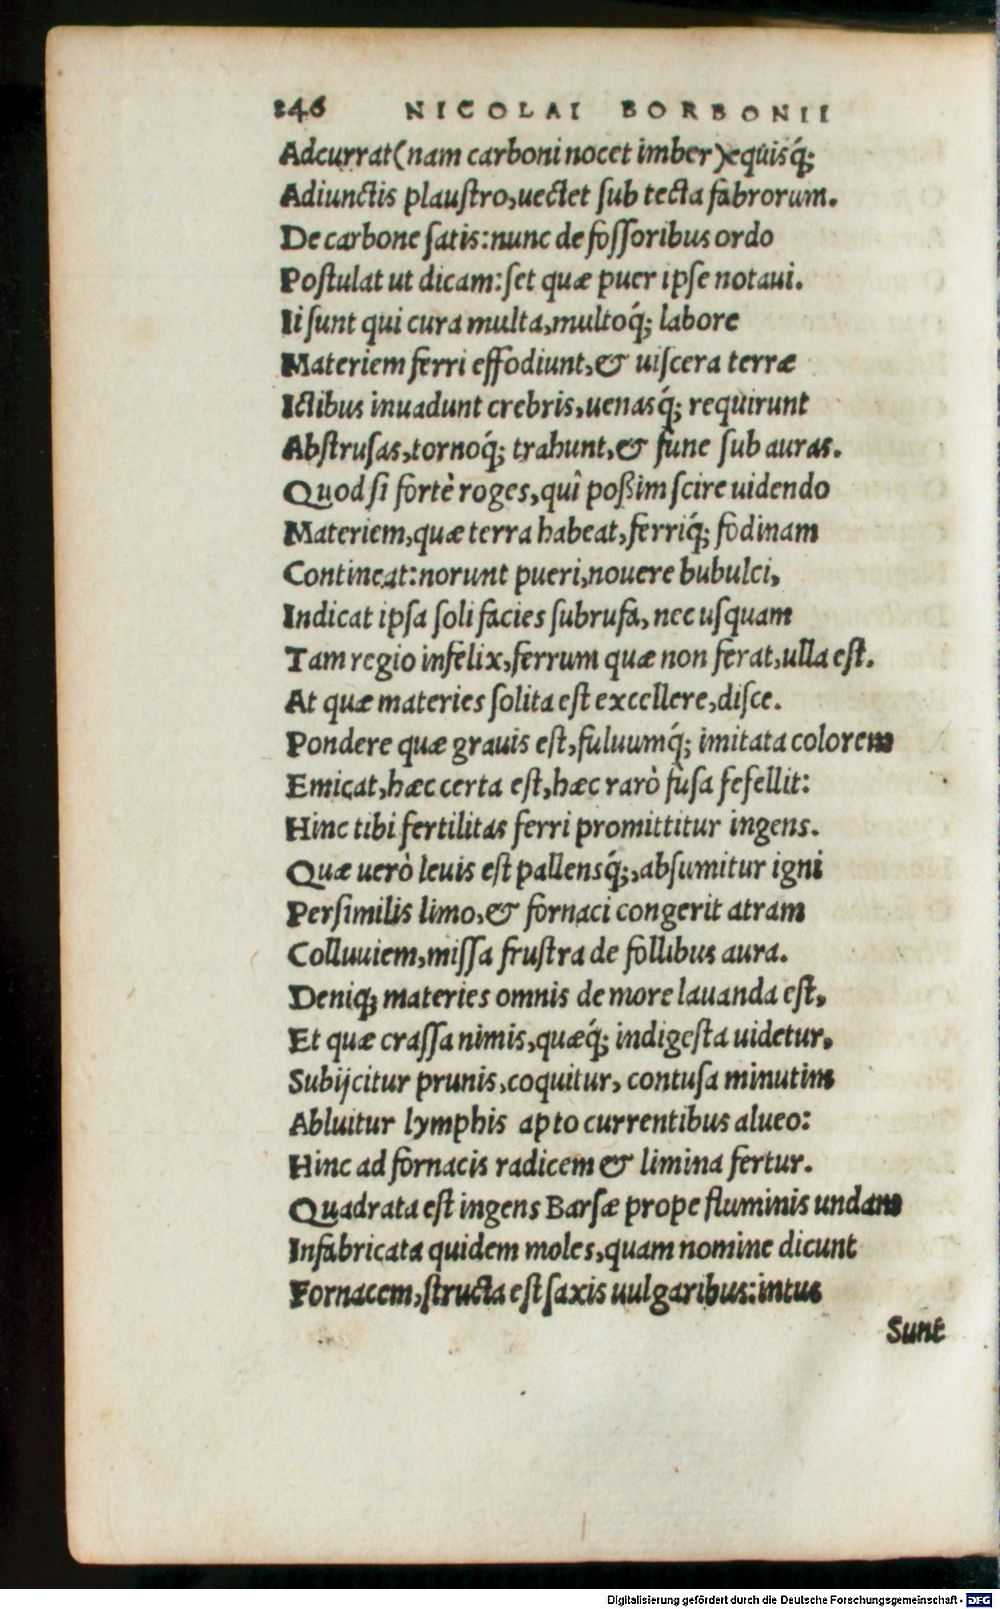 246 NICOLAI BORBONII
Adcurrat (nam carboni nocet imber) equisq́;
Adiunctis plauſtro, uectet ſub tecta fabrorum.
De carbone ſatis: nunc de foſſoribus ordo
Poſtulat ut dicam: ſet quæ puer ipſe notaui.
Ii ſunt qui cura multa, multoq́; labore
Materiem ferri effodiunt, & uiſcera terræ
Ictibus inuadunt crebris, uenasq́; requirunt
Abſtruſas, tornoq́; trahunt, & fune ſub auras.
Quod ſi fortè roges, quî poßim ſcire uidendo
Materiem, quæ terra habeat, ferriq́; fodinam
Contineat: norunt pueri, nouere bubulci,
Indicat ipſa ſoli facies ſubrufa, nec uſquam
Tam regio infelix, ferrum quæ non ferat, ulla eſt.
At quæ materies ſolita eſt excellere, diſce.
Pondere quæ grauis eſt, fuluumq́; imitata colorem
Emicat, hæc certa eſt, hæc rarò fuſa fefellit:
Hinc tibi fertilitas ferri promittitur ingens.
Quæ uerò leuis eſt pallensq́;, abſumitur igni
Perſimilis limo, & fornaci congerit atram
Colluuiem, miſſa fruſtra de follibus aura.
Deniq; materies omnis de more lauanda eſt,
Et quæ craſſa nimis, quæq́; indigeſta uidetur,
Subijcitur prunis, coquitur, contuſa minutim
Abluitur lymphis apto currentibus alueo:
Hinc ad fornacis radicem & limina fertur.
Quadrata eſt ingens Barſæ prope fluminis undam
Infabricata quidem moles, quam nomine dicunt
Fornacem, ſtructa eſt ſaxis uulgaribus: intus
Sunt
Digitalisierung gefördert durch die Deutsche Forschungsgemeinschaft - DFG